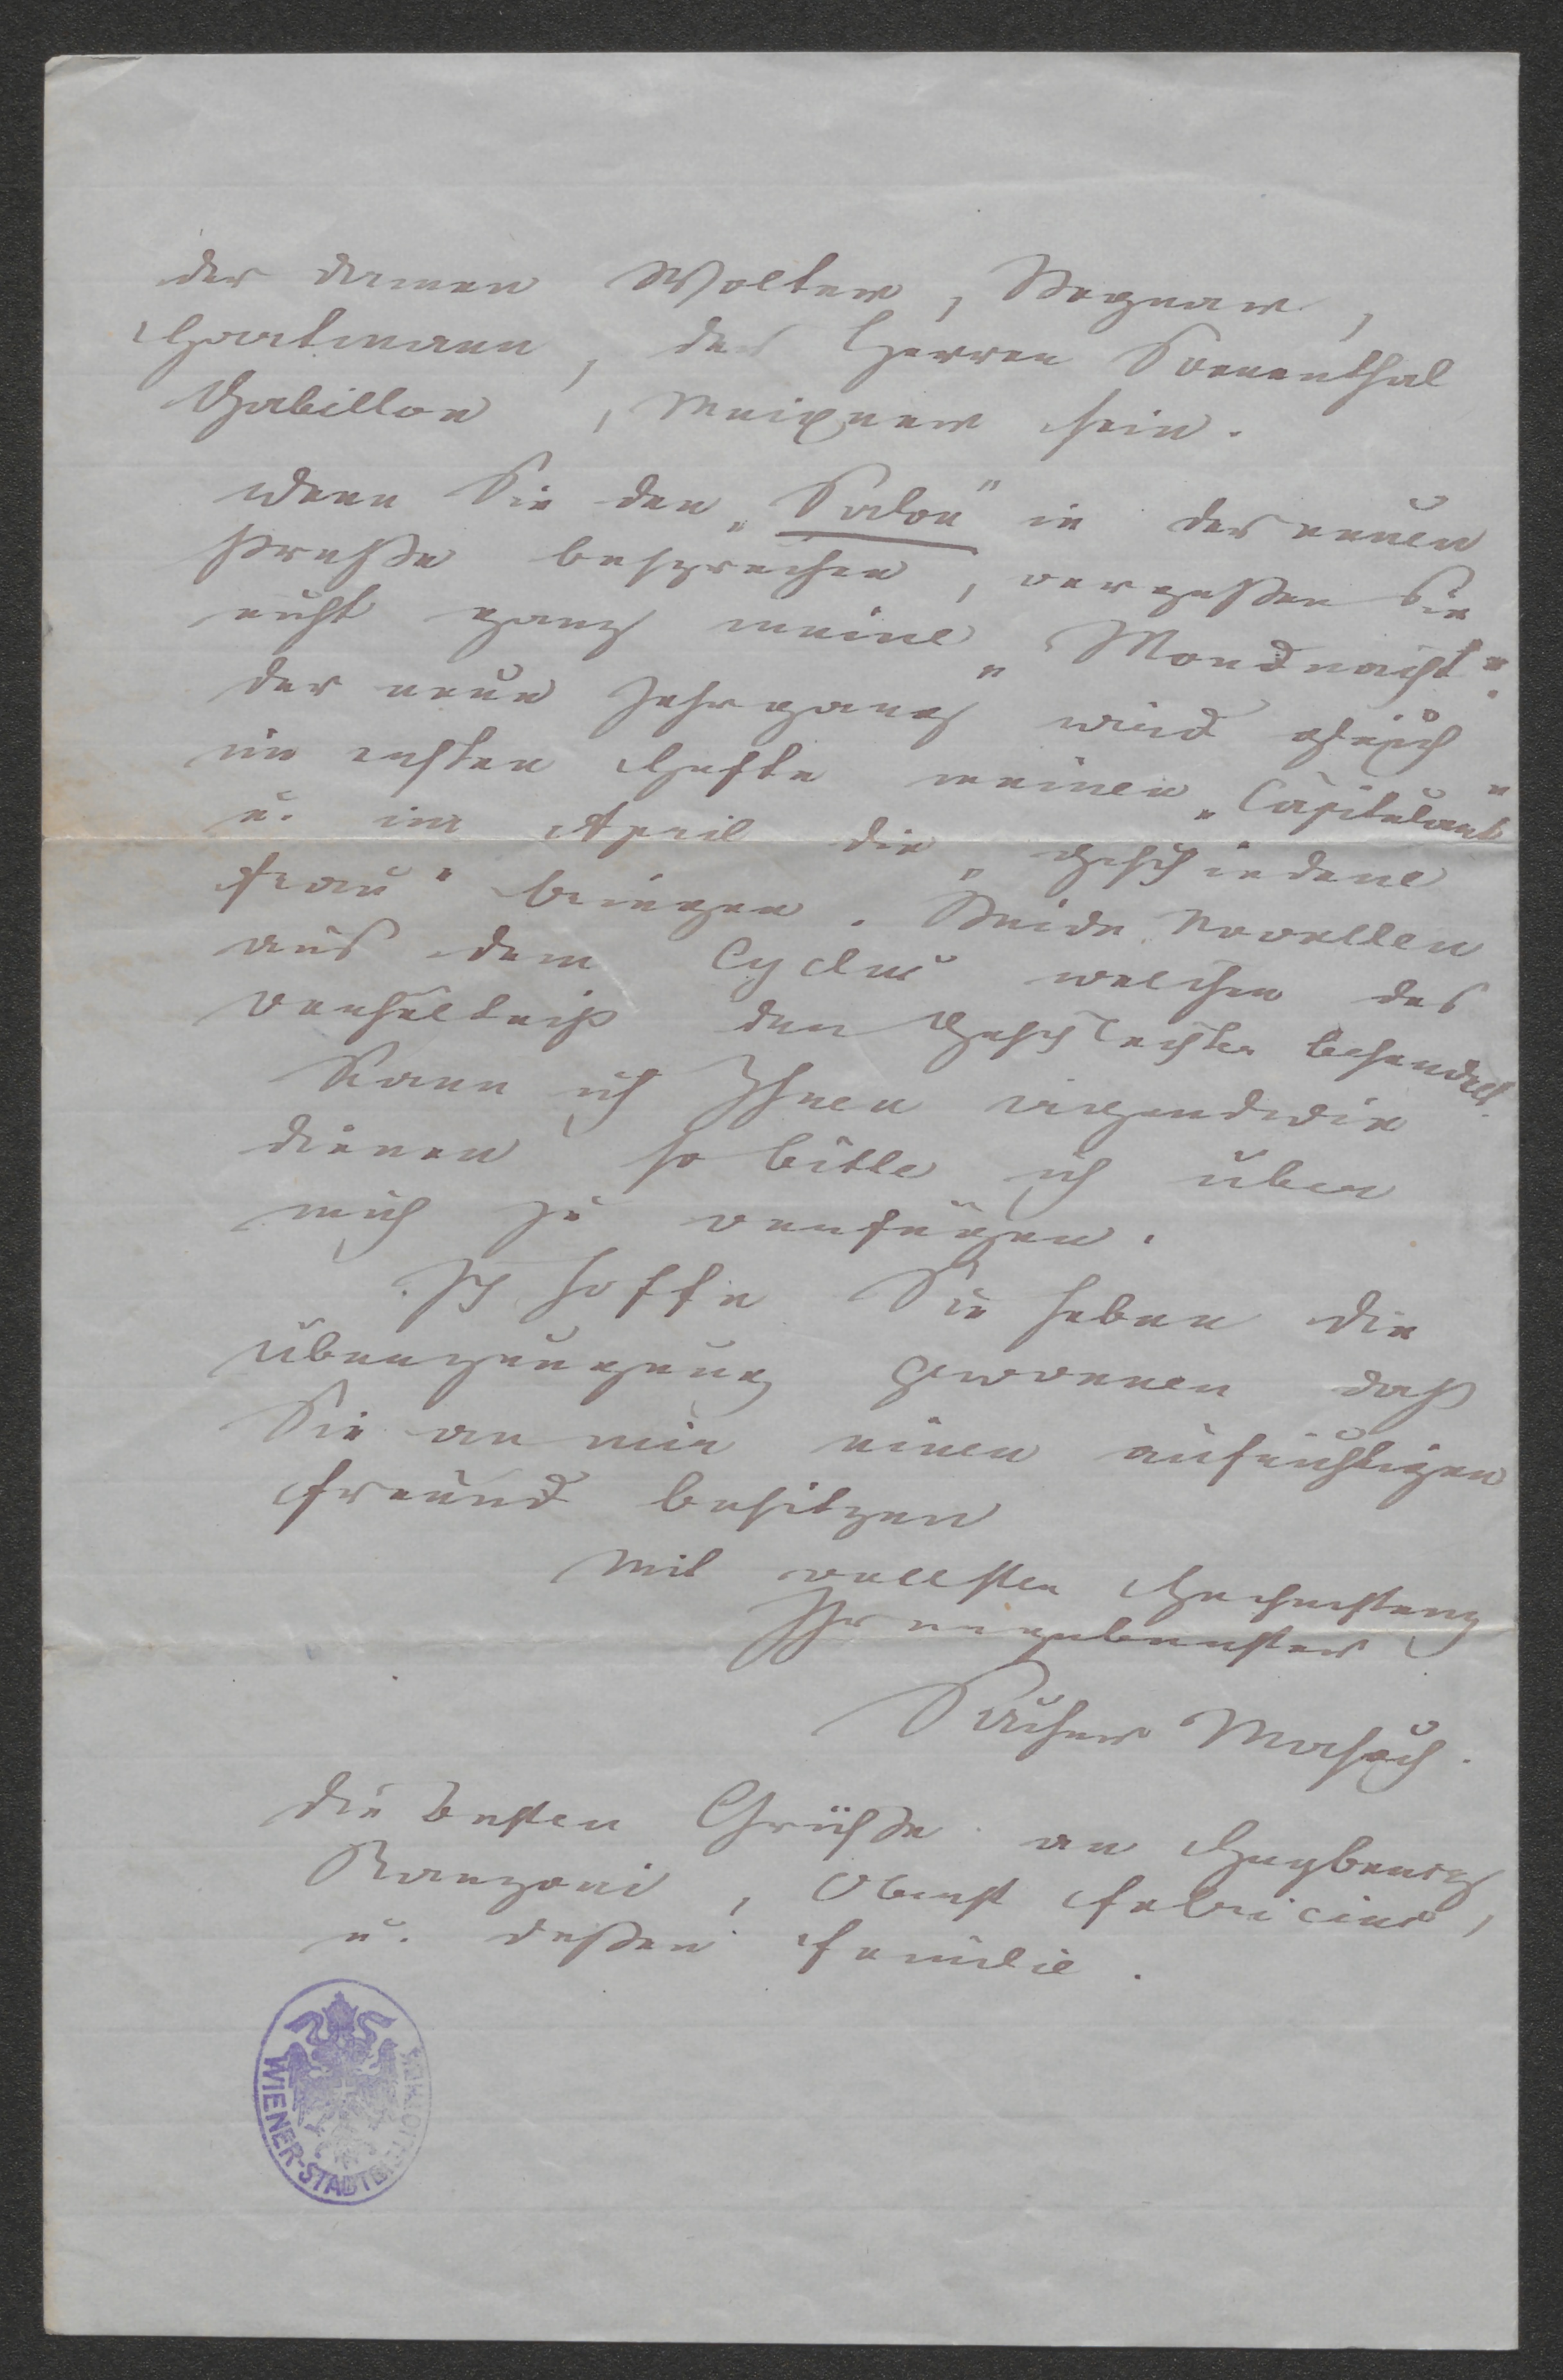 der Damen Wolter, Bognar,
Hartmann, der Herren Sonnenthal
Gabillon, Meixner sein.
Wenn Sie den „Salon“ in der neuen
Presse besprechen, vergessen Sie
nicht ganz meine „Mondnacht“.
der neue Jahrgang wird gleich
im ersten Hefte meinen „Capitulant“
u. im April die „geschiedene
Frau“ bringen. Beide Novellen
aus dem Cyclus welcher das
Verhältniß der Geschlechter behandelt.
Kann ich Ihnen irgendwie
dienen so bitte ich über
mich zu verfügen.
Ich hoffe Sie haben die
Überzeugung gewonnen daß
Sie an mir einen aufrichtigen
Freund besitzen
Mit vollster Hochachtung
Ihr ergebenster
Sacher Masoch.
die besten Grüße an
Ranzoni, Oberst Fabricius,
u. dessen Familie.
WIENER-STADTBIBLIOTHEK